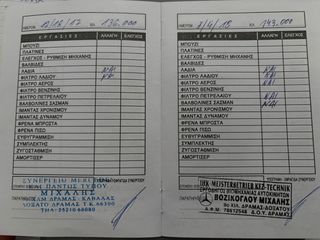 ΗΜΕΡΟΜ. 12/12/17 ΧΛ. 136.000
ΕΡΓΑΣΙΕΣ ΑΛΛΑΓΗ ΕΛΕΓΧΟΣ
ΜΠΟΥΖΙ
ΠΛΑΤΙΝΕΣ
ΕΛΕΓΧΟΣ - ΡΥΘΜΙΣΗ ΜΗΧΑΝΗΣ
ΒΑΛΒΙΔΕΣ
ΛΑΔΙΑ ΝΑΙ
ΦΙΛΤΡΟ ΛΑΔΙΟΥ ΝΑΙ
ΦΙΛΤΡΟ ΑΕΡΟΣ
ΦΙΛΤΡΟ ΒΕΝΖΙΝΗΣ
ΦΙΛΤΡΟ ΠΕΤΡΕΛΑΙΟΥ
ΒΑΛΒΟΛΙΝΕΣ ΣΑΣΜΑΝ
ΙΜΑΝΤΑΣ ΧΡΟΝΙΣΜΟΥ
ΙΜΑΝΤΑΣ ΔΥΝΑΜΟΥ
ΦΡΕΝΑ ΜΠΡΟΣΤΑ
ΦΡΕΝΑ ΠΙΣΩ
ΕΥΘΥΓΡΑΜΜΙΣΗ
ΣΥΜΠΛΕΚΤΗΣ
ΖΥΓΟΣΤΑΘΜΙΣΗ
ΑΜΟΡΤΙΣΕΡ
ΣΥΝΕΡΓΕΙΟ
ΚΑΙ ΠΑΝΤΟΣ ΤΥΠΟΥ
ΜΙΧΑΛΗΣ
ΔΡΑΜΑΣ - ΚΑΒΑΛΑΣ
ΔΡΑΜΑΣ Τ.Κ 66300
ΗΜΕΡΟΜ. 2/4/18 ΧΛ. 143.000
ΕΡΓΑΣΙΕΣ ΑΛΛΑΓΗ ΕΛΕΓΧΟΣ
ΜΠΟΥΖΙ
ΠΛΑΤΙΝΕΣ
ΕΛΕΓΧΟΣ - ΡΥΘΜΙΣΗ ΜΗΧΑΝΗΣ
ΒΑΛΒΙΔΕΣ
ΛΑΔΙΑ ΝΑΙ
ΦΙΛΤΡΟ ΛΑΔΙΟΥ ΝΑΙ
ΦΙΛΤΡΟ ΑΕΡΟΣ ΝΑΙ
ΦΙΛΤΡΟ ΒΕΝΖΙΝΗΣ
ΦΙΛΤΡΟ ΠΕΤΡΕΛΑΙΟΥ ΝΑΙ
ΒΑΛΒΟΛΙΝΕΣ ΣΑΣΜΑΝ ΝΑΙ
ΙΜΑΝΤΑΣ ΧΡΟΝΙΣΜΟΥ
ΙΜΑΝΤΑΣ ΔΥΝΑΜΟΥ
ΦΡΕΝΑ ΜΠΡΟΣΤΑ
ΦΡΕΝΑ ΠΙΣΩ
ΕΥΘΥΓΡΑΜΜΙΣΗ
ΣΥΜΠΛΕΚΤΗΣ
ΖΥΓΟΣΤΑΘΜΙΣΗ
ΑΜΟΡΤΙΣΕΡ
IHR-MEISTERBETRIEB KFZ-TECHNIK
ΒΟΖΙΚΟΓΛΟΥ ΜΙΧΑΗΛ
ΔΡΑΜΑΣ-ΔΟΞΑΤΟΥ
Δ.Ο.Υ. ΔΡΑΜΑΣ